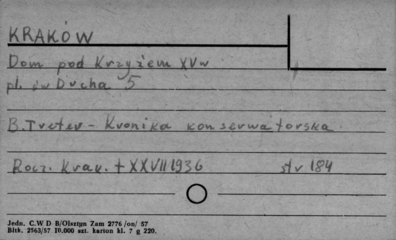 KRAKÓW
Dom pod Krzyżem XVw
pl. św Ducha 5
B. Treter - Kronika konserwatorska
Rocz. Krak. t XXVII 1936 str 184
Jedn. C. W D B/Olsztyn Zam 2776 /on/ 57
Błbk. 2563/57 10.000 szt. karton kl. 7 g 220.